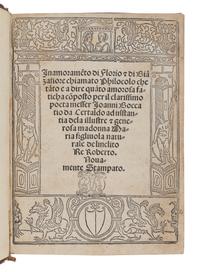 Inamoramẽto di Florio ⁊ di Biã
zafiore chiamato Philocolo che
tãto e a dire quãto amorosa fa-
ticha cõposto per il clarissimo
poeta messer Joanni Boccac
tio da Certaldo ad instan-
tia dela illustre ⁊ gene-
rosa madonna Ma-
ria figliuola natu-
rale de linclito
Re Roberto.
Noua-
mente Stampato.